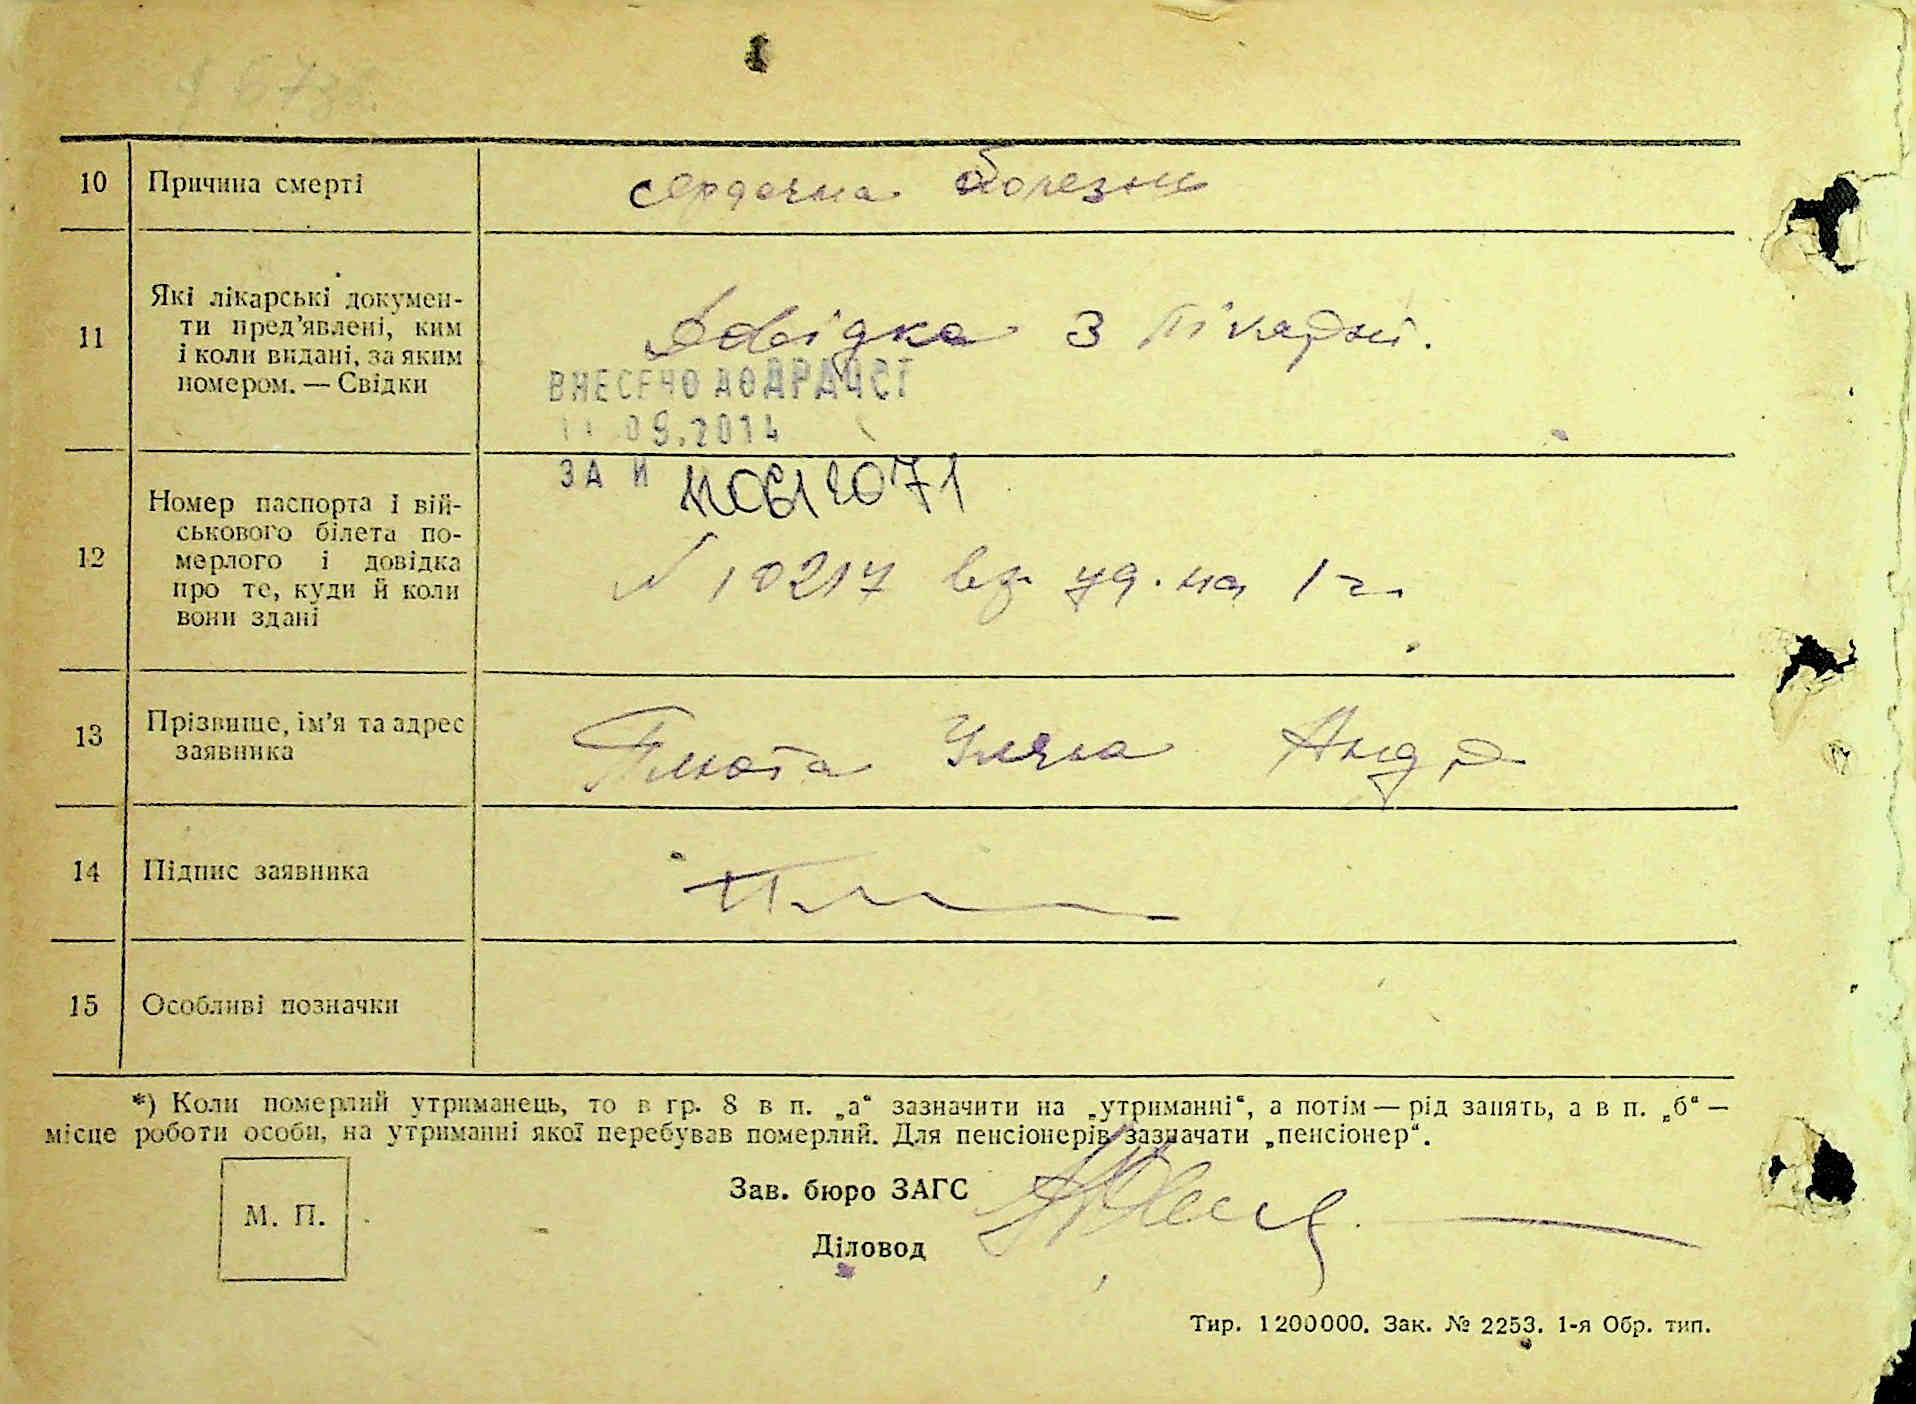 10 Причина смерті сердечна болезнь
11 Які лікарські докумен-
ти пред'явлені, ким
і коли видані, за яким
номером. — Свідки
Довідка з лікарні.
ВНЕСЕНО ДО ДРАЦСГ
11.09.2014
ЗА N 110612071
12 Номер паспорта і вій-
ськового білета по-
мерлого і довідка
про те, куди й коли
вони здані
N 10217 вз. уд. на 1 г.
13 Прізвище, ім'я та адрес
заявника
Плюта Уляна Андр
14 Підпис заявника
15 Особливі позначки
*) Коли померлий утриманець, то в гр. 8 в п. „а“ зазначити на „утриманні“, а потім — рід занять, а в п. „б“ —
місце роботи особи, на утриманні якої перебував померлий. Для пенсіонерів зазначати „пенсіонер“.
М. П.
Зав. бюро ЗАГС
Діловод
Тир. 1200000. Зак. № 2253. 1-я Обр. тип.